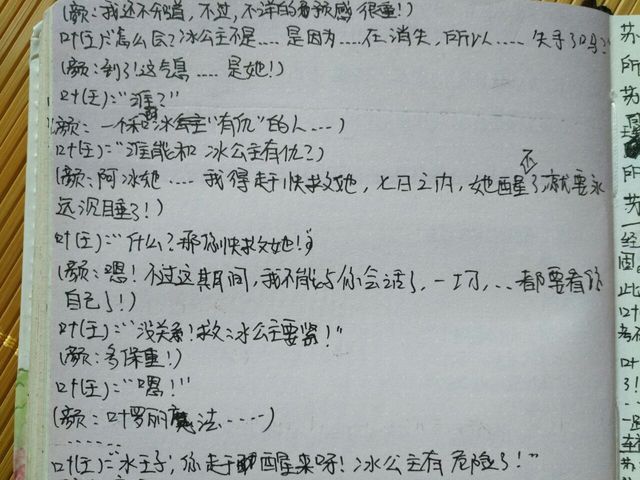 (颜:我还不知道,不过,不详的预感很重!)
叶(王):"怎么会?冰公主不是……是因为……在消失,所以……失手了吗?
(颜:到了!这气息……是她!)
叶(王):"谁?"
(颜:一个和冰公主"有仇"的人……)
叶(王):"谁能和冰公主有仇?)
(颜:阿冰她……我得赶快救她,七日之内,她醒否了就要永
远沉睡了!)
叶(王):"什么?那你快救她!"
(颜:嗯!不过这期间,我不能与你会话了,一切……都要看你
自己了!)
叶(王):"没关系!救冰公主要紧!"
(颜:多保重!)
叶(王):"嗯!"
(颜:叶罗丽魔法……)
……
叶(王):"水王子,你赶醒来呀!冰公主有危险了!"
苏
所
苏
所
苏
经
固
此
叶
考
叶
了!
一
苏